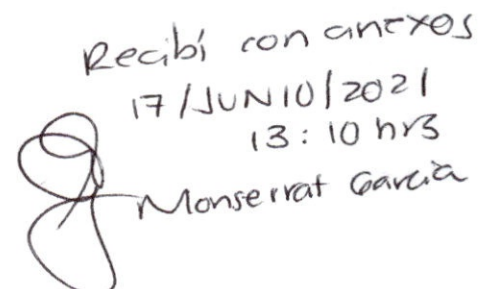 Recibí con anexos
17/JUNIO/2021
13:10 hrs
Monserrat García